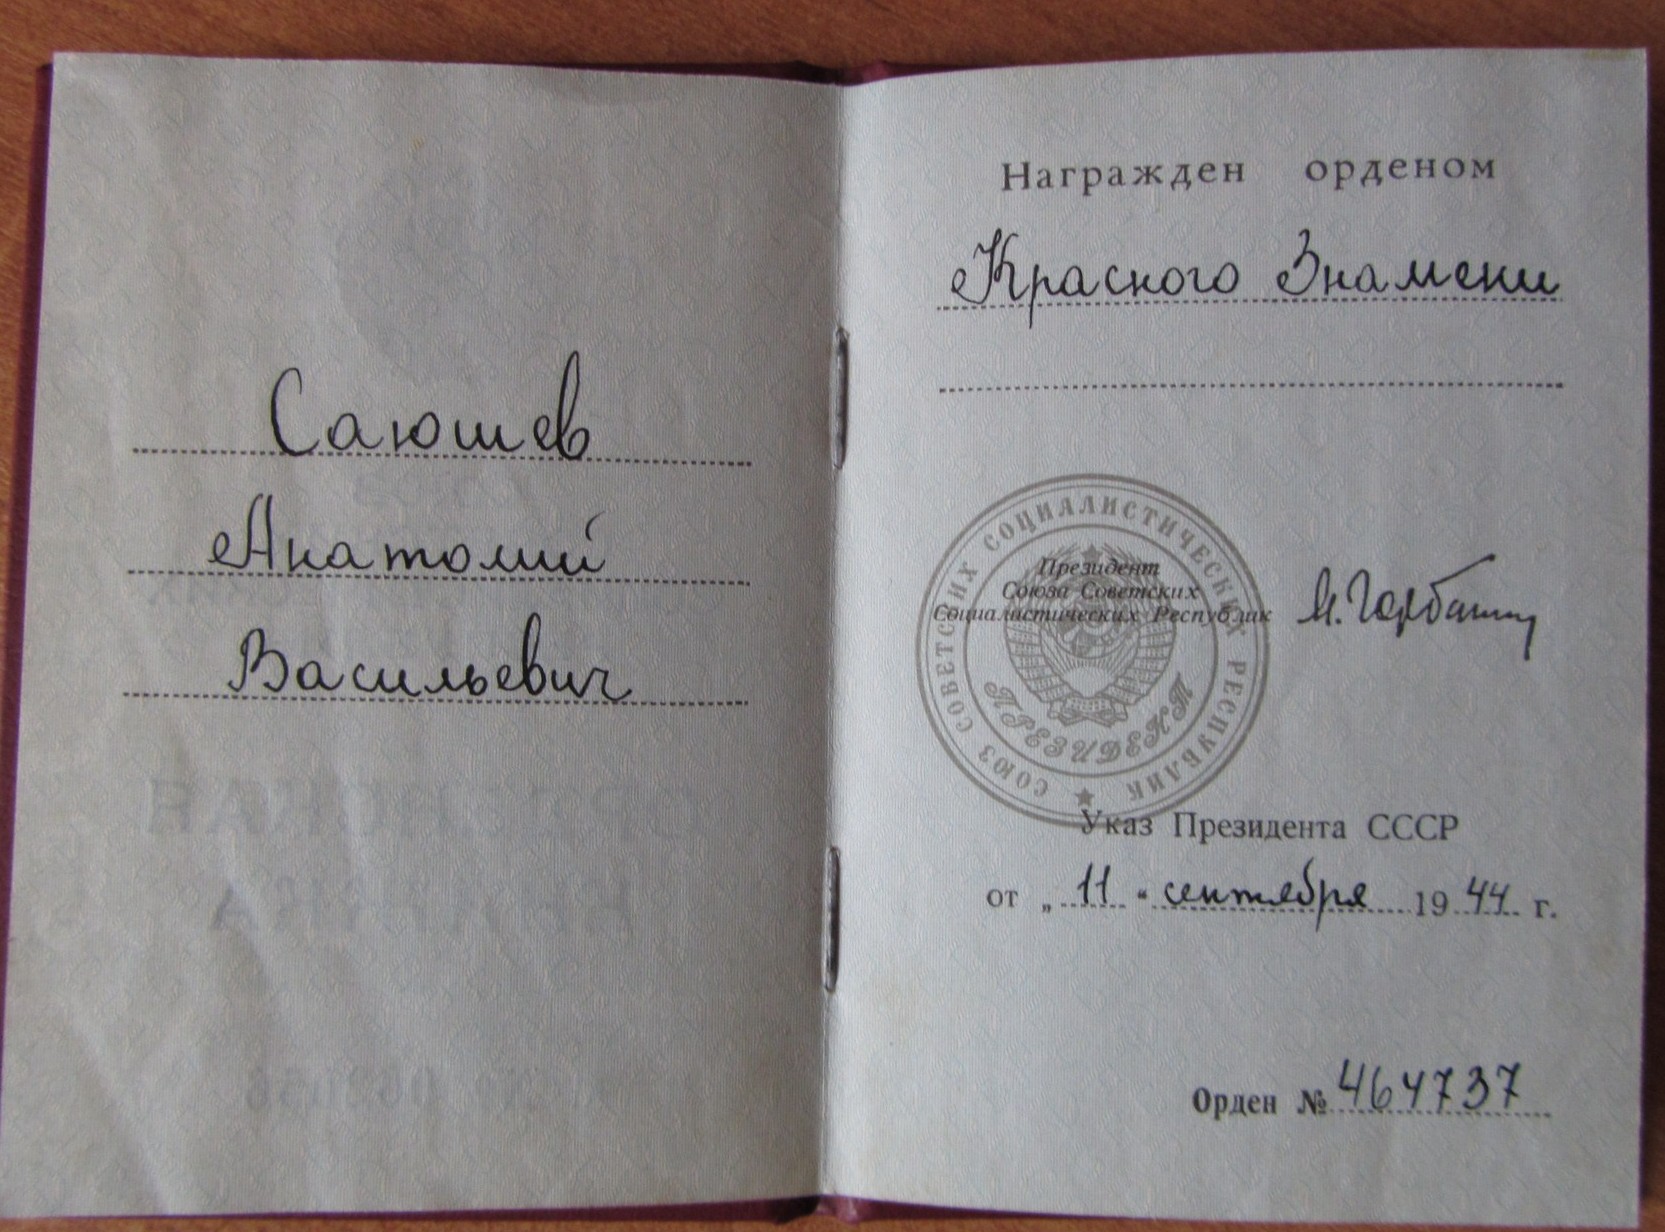 Саюшев
Анатолий
Васильевич
Награжден орденом
Красного Знамени
СОЮЗ СОВЕТСКИХ СОЦИАЛИСТИЧЕСКИХ РЕСПУБЛИК
Президент
Союза Советских
Социалистических Республик
М. Горбачев
ПРЕЗИДЕНТ
Указ Президента СССР
от „ 11 “ сентября 1944 г.
Орден № 464737